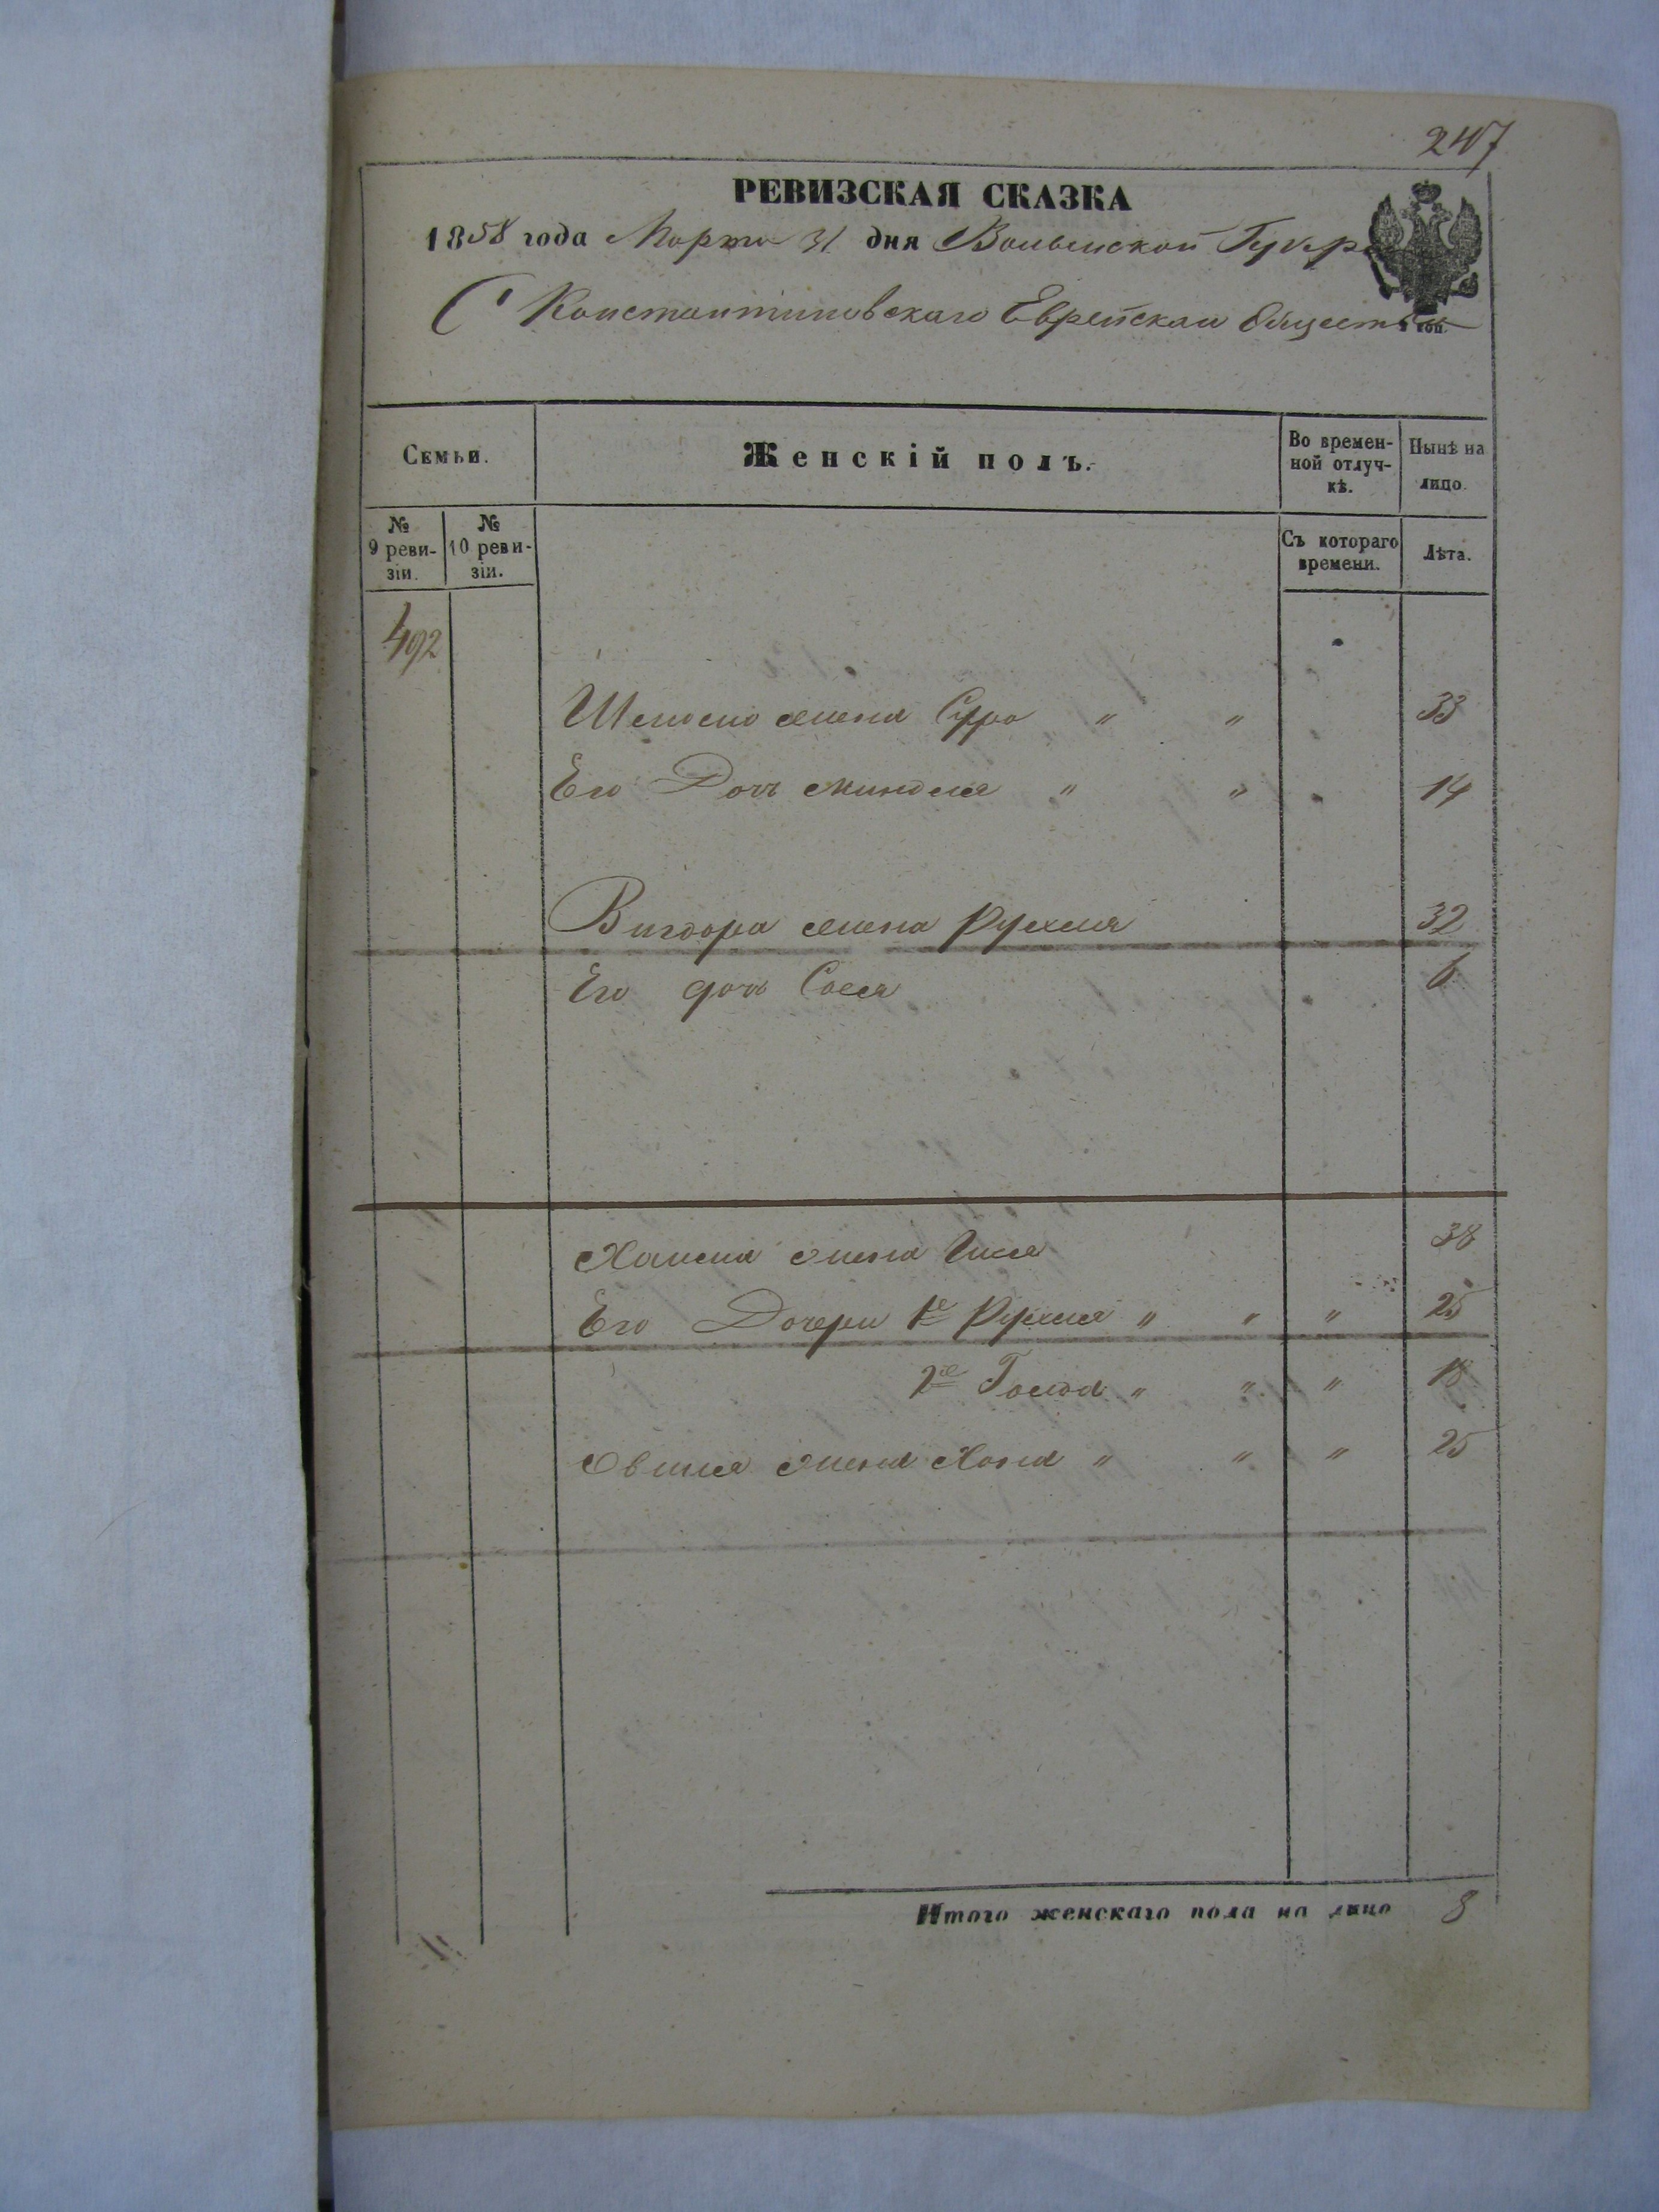 247
РЕВИЗСКАЯ СКАЗКА
1858 года Марта 31 дня Волынской Губер
С Константиновскаго Еврейскаи Общества
Семьи.
Женскiй полъ.
Во времен-
ной отлуч-
кѣ.
Нынѣ на
лицо.
№
9 реви-
зiи.
№
10 реви-
зiи.
Съ котораго
времени.
Лѣта.
492
жена Сура " " 33
Его Дочь Миндля " " 14
Вигдора жена Рухля 32
Его дочь Сося 6
жена 38
Его Дочери 1е Рухля " " " 25
2е " " " 18
жена Хана " " " 25
Итого женскаго пола на лицо 8